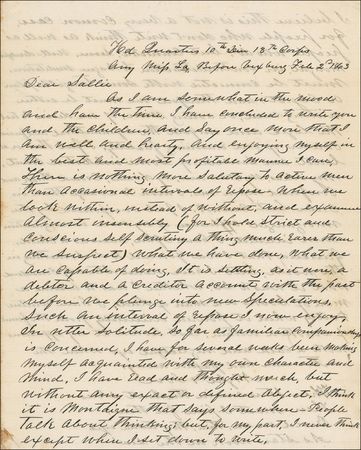 Hd Quarters 10th Div 13th Corps
Army Miss La Before Vixburg Feb 2d 1863
Dear Sallie
As I am somewhat in the mood
and have the time, I have concluded to write you
and the children, and say once more that I
am well and hearty, and enjoying myself in
the best and most profitable manner I can.
There is nothing more salutary to active men
than occasional intervals of repose. When we
look within, instead of without, and examine
almost insensibly (for I hold strict and
conscious self scrutiny a thing much rarer than
we suspect) what we have done, what we
are capable of doing, It is settling, as it were, a
debtor and a creditor account with the past
before we plunge into new speculations,
Such an interval of repose I now enjoy,
In utter solitude, so far as familiar companionship
is concerned, I have for several weeks been making
myself acquainted with my own character and
mind, I have read and thought much, but
without any exact or defined object, I think
it is Montaigne that says somewhere - People
talk about thinking; but, for my part, I never think
except when I set down to write,